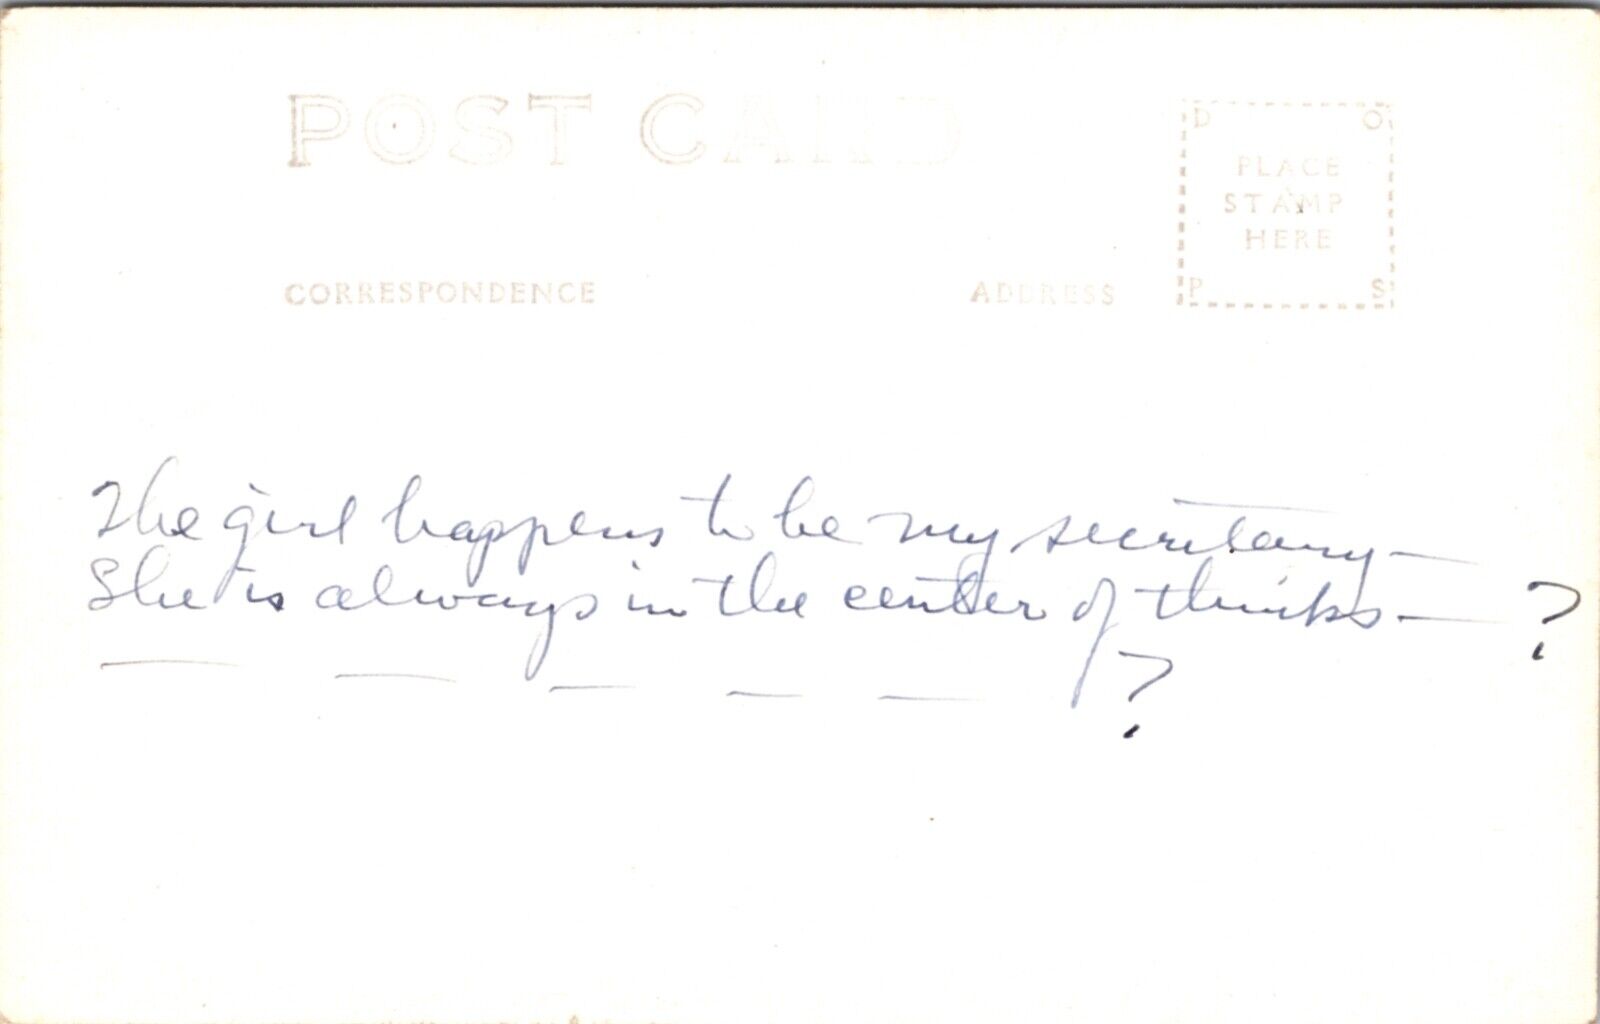 POST CARD
D O
PLACE
STAMP
HERE
P S
CORRESPONDENCE
ADDRESS
The girl happens to be my secretary —
She is always in the center of thinks — ?
— — — — — ?